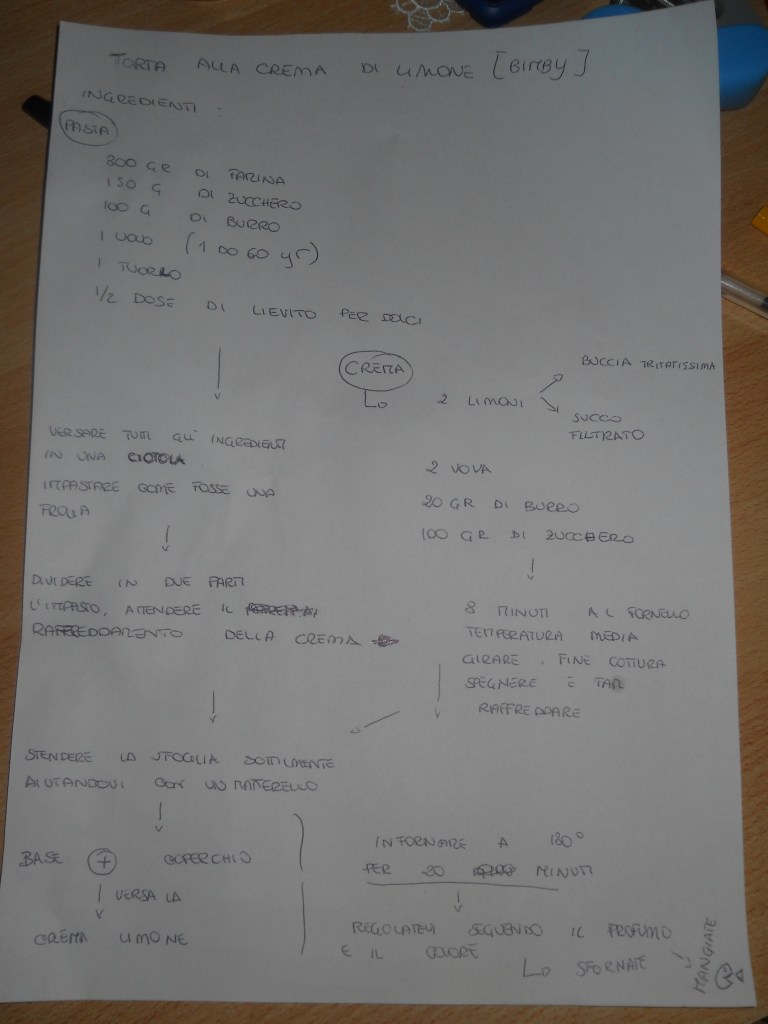 TORTA ALLA CREMA DI LIMONE [BIMBY]
INGREDIENTI :
PASTA
300 GR DI FARINA
150 G DI ZUCCHERO
100 G DI BURRO
1 UOVO (1 DO 60 gr)
1 TUORLO
1/2 DOSE DI LIEVITO PER DOLCI
VERSARE TUTTI GLI INGREDIENTI
IN UNA CIOTOLA
IMPASTARE COME FOSSE UNA
FROLLA
DIVIDERE IN DUE PARTI
L'IMPASTO, ATTENDERE IL
RAFFREDDAMENTO DELLA CREMA
CREMA
2 LIMONI
BUCCIA TRITATISSIMA
SUCCO
FILTRATO
2 UOVA
20 GR DI BURRO
100 GR DI ZUCCHERO
8 MINUTI AL FORNELLO
TEMPERATURA MEDIA
GIRARE, FINE COTTURA
SPEGNERE E FAR
RAFFREDDARE
STENDERE LA SFOGLIA SOTTILMENTE
AIUTANDOVI CON UN MATTERELLO
BASE + COPERCHIO
VERSA LA
CREMA LIMONE
INFORNARE A 180°
PER 20 MINUTI
REGOLATEVI SEGUENDO IL PROFUMO
E IL COLORE
SFORNATE
MANGIATE !!